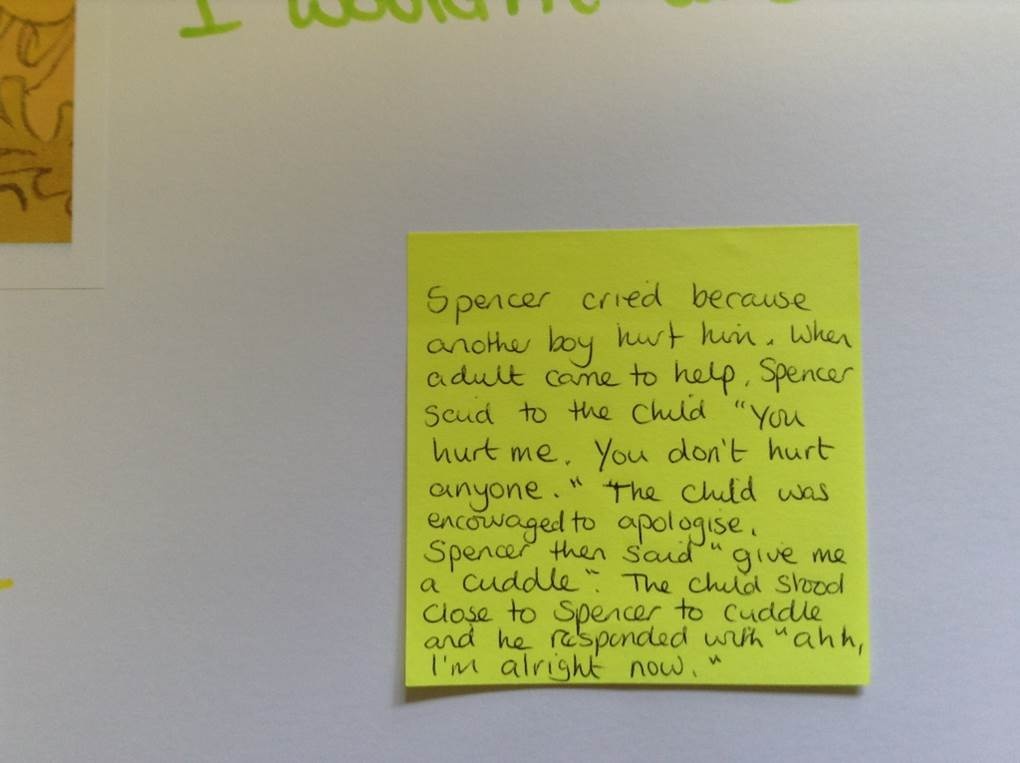 I wouldn't
Spencer cried because
another boy hurt him. When
adult came to help, Spencer
said to the child "You
hurt me. You don't hurt
anyone." The child was
encouraged to apologise.
Spencer then said "give me
a cuddle". The child stood
close to Spencer to cuddle
and he responded with "ahh,
I'm alright now."